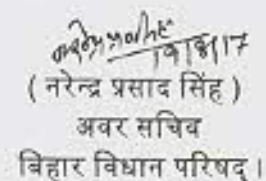 19/8/17
( नरेन्द्र प्रसाद सिंह )
अवर सचिव
बिहार विधान परिषद् ।